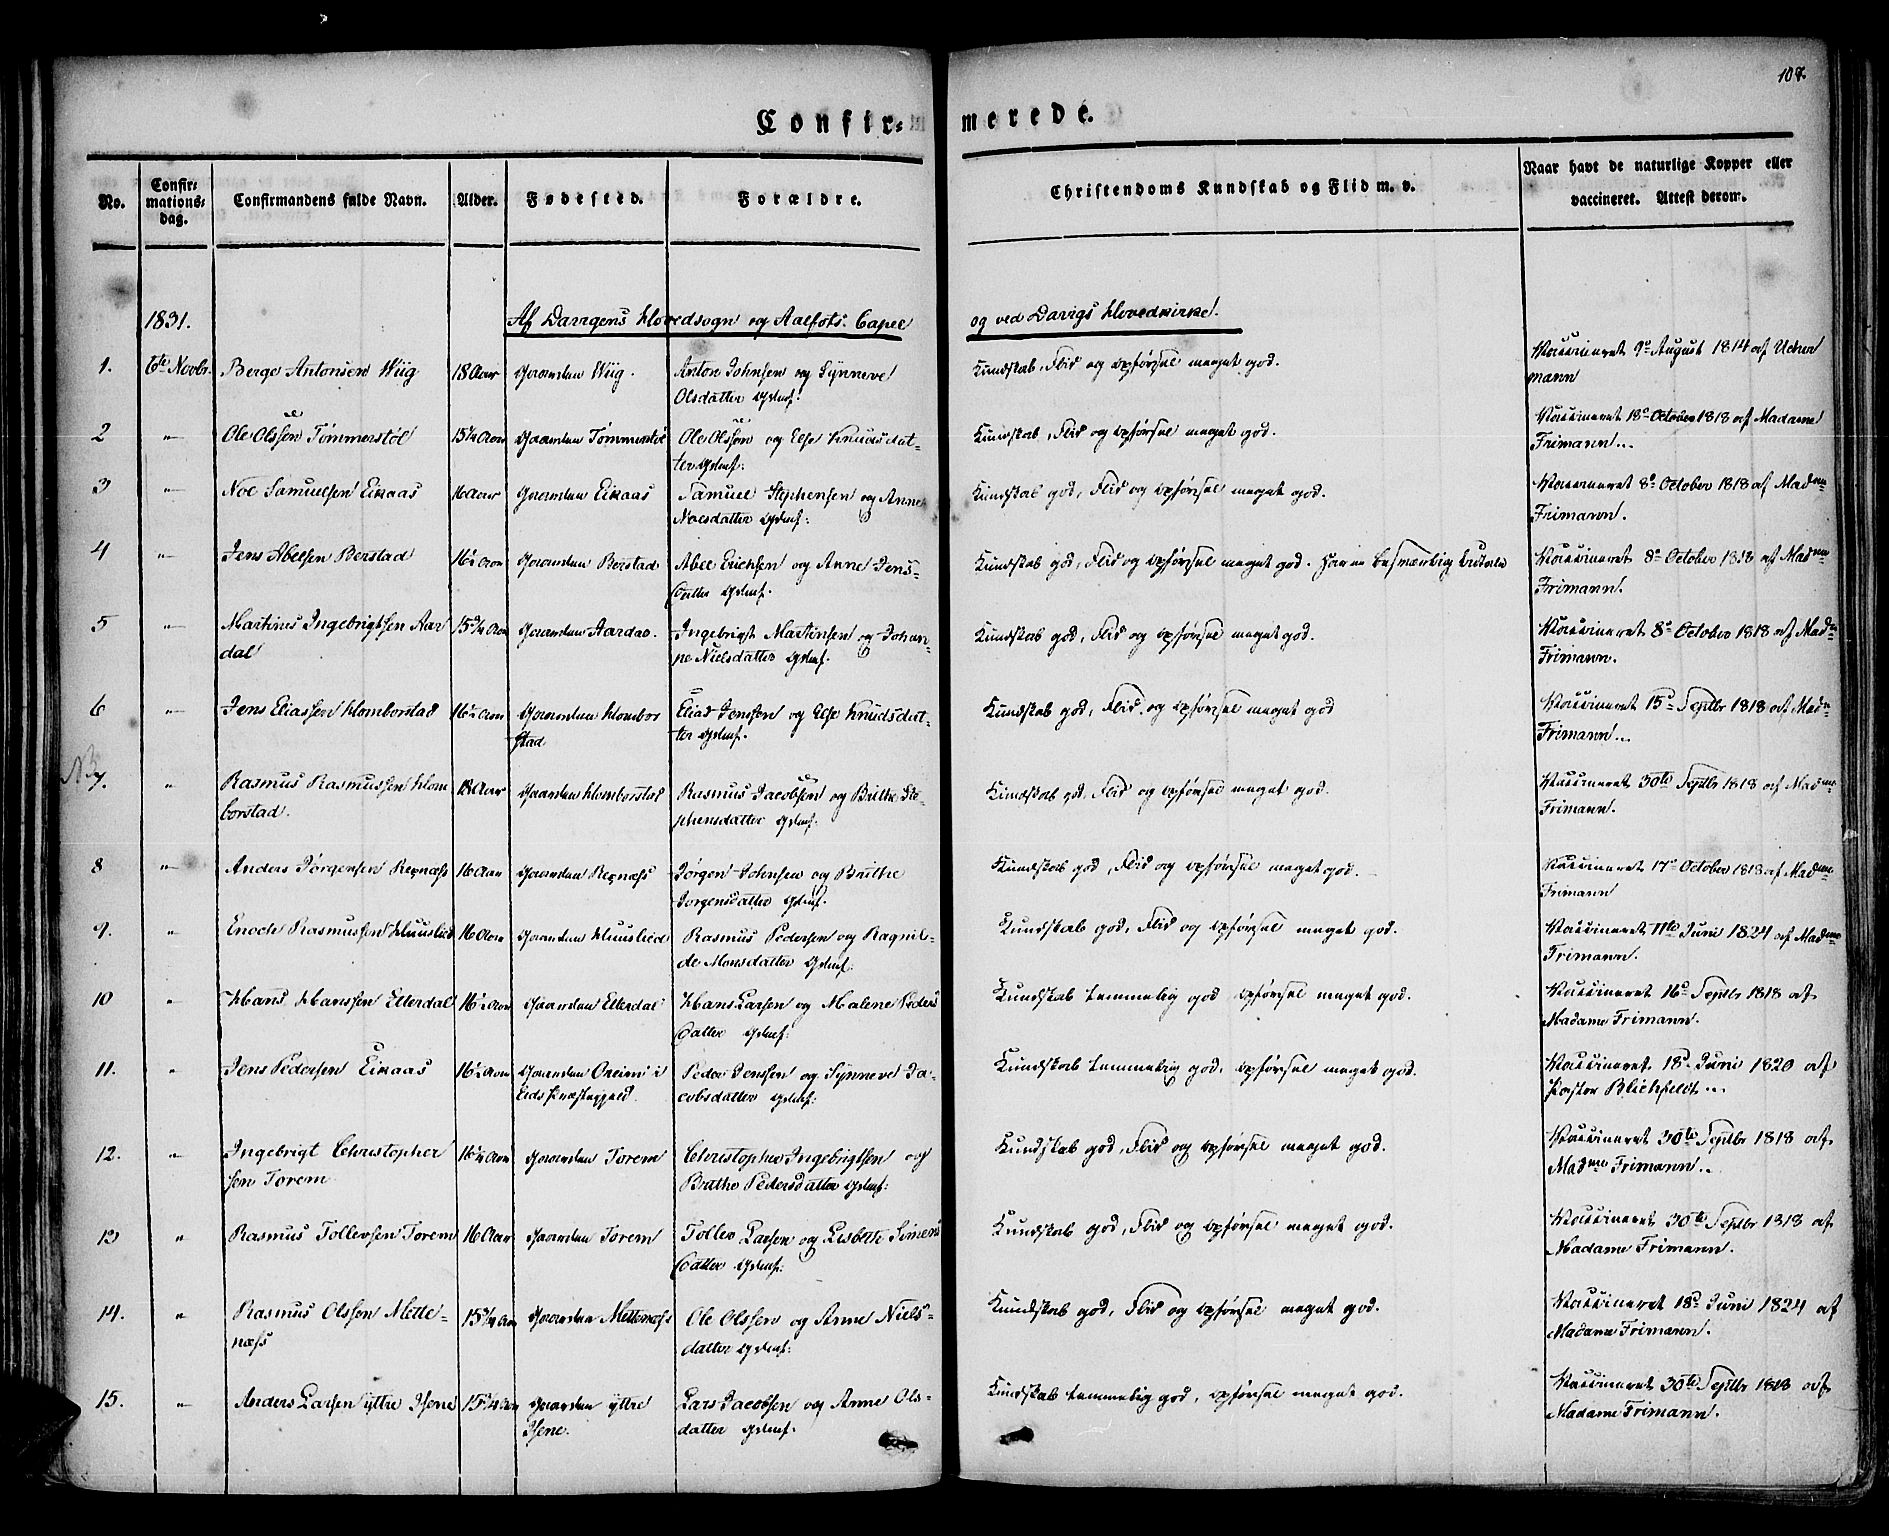 107.
Confir= merede.
No.
Confir=
mations=
dag.
Confirmandens fulde Navn.
Alder.
Fødested.
Forældre.
Christendoms Kundskab og Flid m. v.
Naar havt de naturlige Kopper eller
vaccineret. Attest derom.
1831.
Af Davigens Hovedsogn og Aalfots Capel
og ved Davigs Hovedkirke.
1. 6te Novbr. Berge Antonsen Wiig 18 Aar Gaarden Wiig. Anton Johnsen og Synneve Kundskab, Flid og Opførsel meget god. Vaccineret 9de August 1814 af
Olsdatter mann
2 " Ole Olssøn Tømmerstøl 15¼ Aar Gaarden Tømmerstøl Ole Olssøn og Else Knudsdat= Kundskab, Flid og Opførsel meget god. Vaccineret 18de October 1818 af Madame
ter Frimann...
3 " Noe Samuelsen Eikaas 16 Aar Gaarden Eikaas Samuel Stephensen og Anne Kundskab god, Flid og Opførsel meget god. Vaccineret 8de October 1818 af Madme
Noesdatter Frimann.
4 " Jens Abelsen Berstad 16½ Aar Gaarden Berstad Abel Erichsen og Anne Jens= Kundskab god, Flid og Opførsel meget god. Har en Vaccineret 8de October 1818 af Madme
datter Frimann.
5 " Martinus Ingebrigtsen Aar 15¾ Aar Gaarden Aardal. Ingebrigt Martinsen og Johan= Kundskab god, Flid og Opførsel meget god. Vaccineret 8de October 1818 af Madme
dal ne Nielsdatter Frimann.
6 " Jens Eliassen Homborstad 16½ Aar Gaarden Hombor Elias Jenssen og Else Knudsdat= Kundskab god, Flid og Opførsel meget god Vaccineret 15de Septbr 1818 af Madme
stad ter Frimann...
NB
7. " Rasmus Rasmussen Hom 18 Aar Gaarden Homborstad Rasmus Jacobsen og Brithe Ste= Kundskab god, Flid og Opførsel meget god. Vaccineret 30te Septbr 1818 af Madme
borstad. phensdatter Frimann.
8 " Anders Jørgensen Regnæss 16 Aar Gaarden Regnæss Jørgen Johnsen og Brithe Kundskab god, Flid og Opførsel meget god. Vaccineret 17de October 1818 af Madme
Jørgensdatter Frimann
9. " Enoch Rasmussen Huuslied 16 Aar Gaarden Huuslied Rasmus Pedersen og Ragnil= Kundskab god, Flid og Opførsel meget god. Vaccineret 11te Juni 1824 af Madme
de Monsdatter Frimann.
10 " Hans Hanssen Elterdal 16½ Aar Gaarden Elterdal Hans Larsen og Malene Peders Kundskab temmelig god Opførsel meget god. Vaccineret 16de Septbr 1818 af
datter Madame Frimann.
11. " Jens Pedersen Eikaas 16½ Aar Gaarden Oreim i Peder Jenssen og Synneve Ja= Kundskab temmelig god, Opførsel meget god. Vaccineret 18de Juni 1820 af
Eids Præstegjeld. cobsdatter Pastor Blichfeldt...
12. " Ingebrigt Christopher 16¼ Aar Gaarden Torem Christopher Ingebrigtsen og Kundskab god, Flid og Opførsel meget god. Vaccineret 30te Septbr 1818 af
sen Torem Brithe Pedersdatter Madme Frimann...
13 " Rasmus Tollevsen Torem 16 Aar Gaarden Torem Tollev Larsen og Lisbeth Simens Kundskab god, Flid og Opførsel meget god. Vaccineret 30te Septbr 1818 af
datter Madame Frimann.
14. " Rasmus Olssøn Mette= 15¾ Aar Gaarden Mettenæss Ole Olssøn og Anne Niels= Kundskab god, Flid og Opførsel meget god. Vaccineret 18de Juni 1824 af
næss datter Madame Frimann.
15. " Anders Larsen yttre Hsene 15¾ Aar Gaarden yttre Lars Jacobsen og Anne Ols= Kundskab temmelig god, Opførsel meget god. Vaccineret 30te Septbr 1818 af
Hsene. datter Madame Frimann.